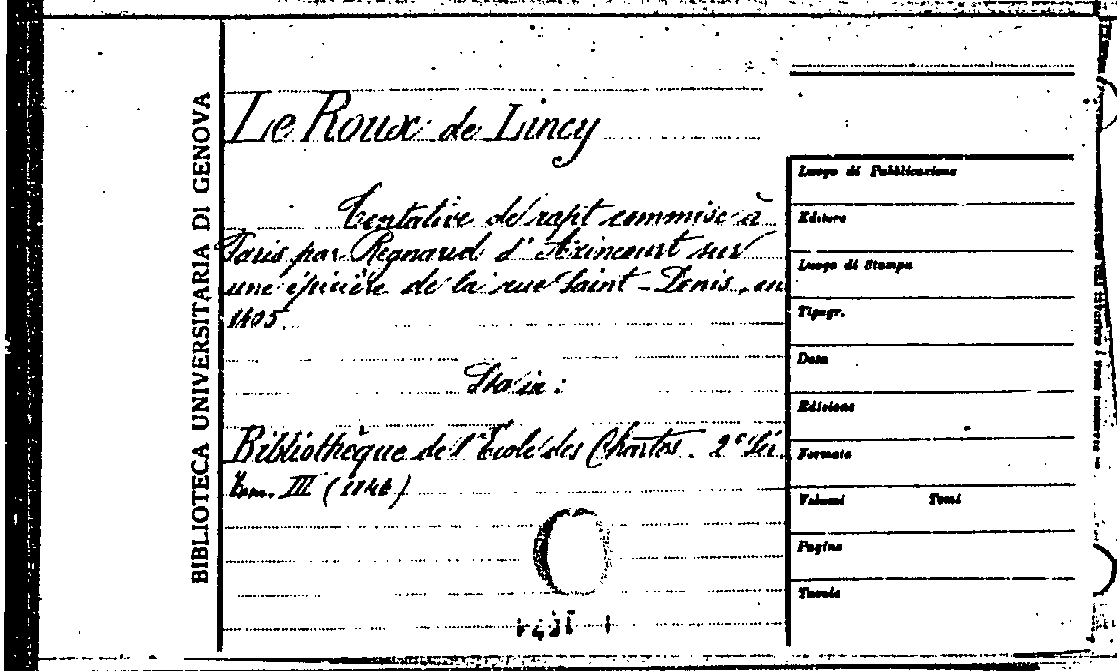 BIBLIOTECA UNIVERSITARIA DI GENOVA
Le Roux de Lincy
Tentative de rapt commise à
Paris par Regnaud d'Azincourt sur
une épicière de la rue Saint-Denis, en
1405.
Sta in:
Bibliothèque de l'Ecole des Chartes. 2e Sér.
Tom. III (1846)
Luogo di Pubblicazione
Editore
Luogo di Stampa
Tipogr.
Data
Edizione
Formato
Volumi Tomi
Pagine
Tavole